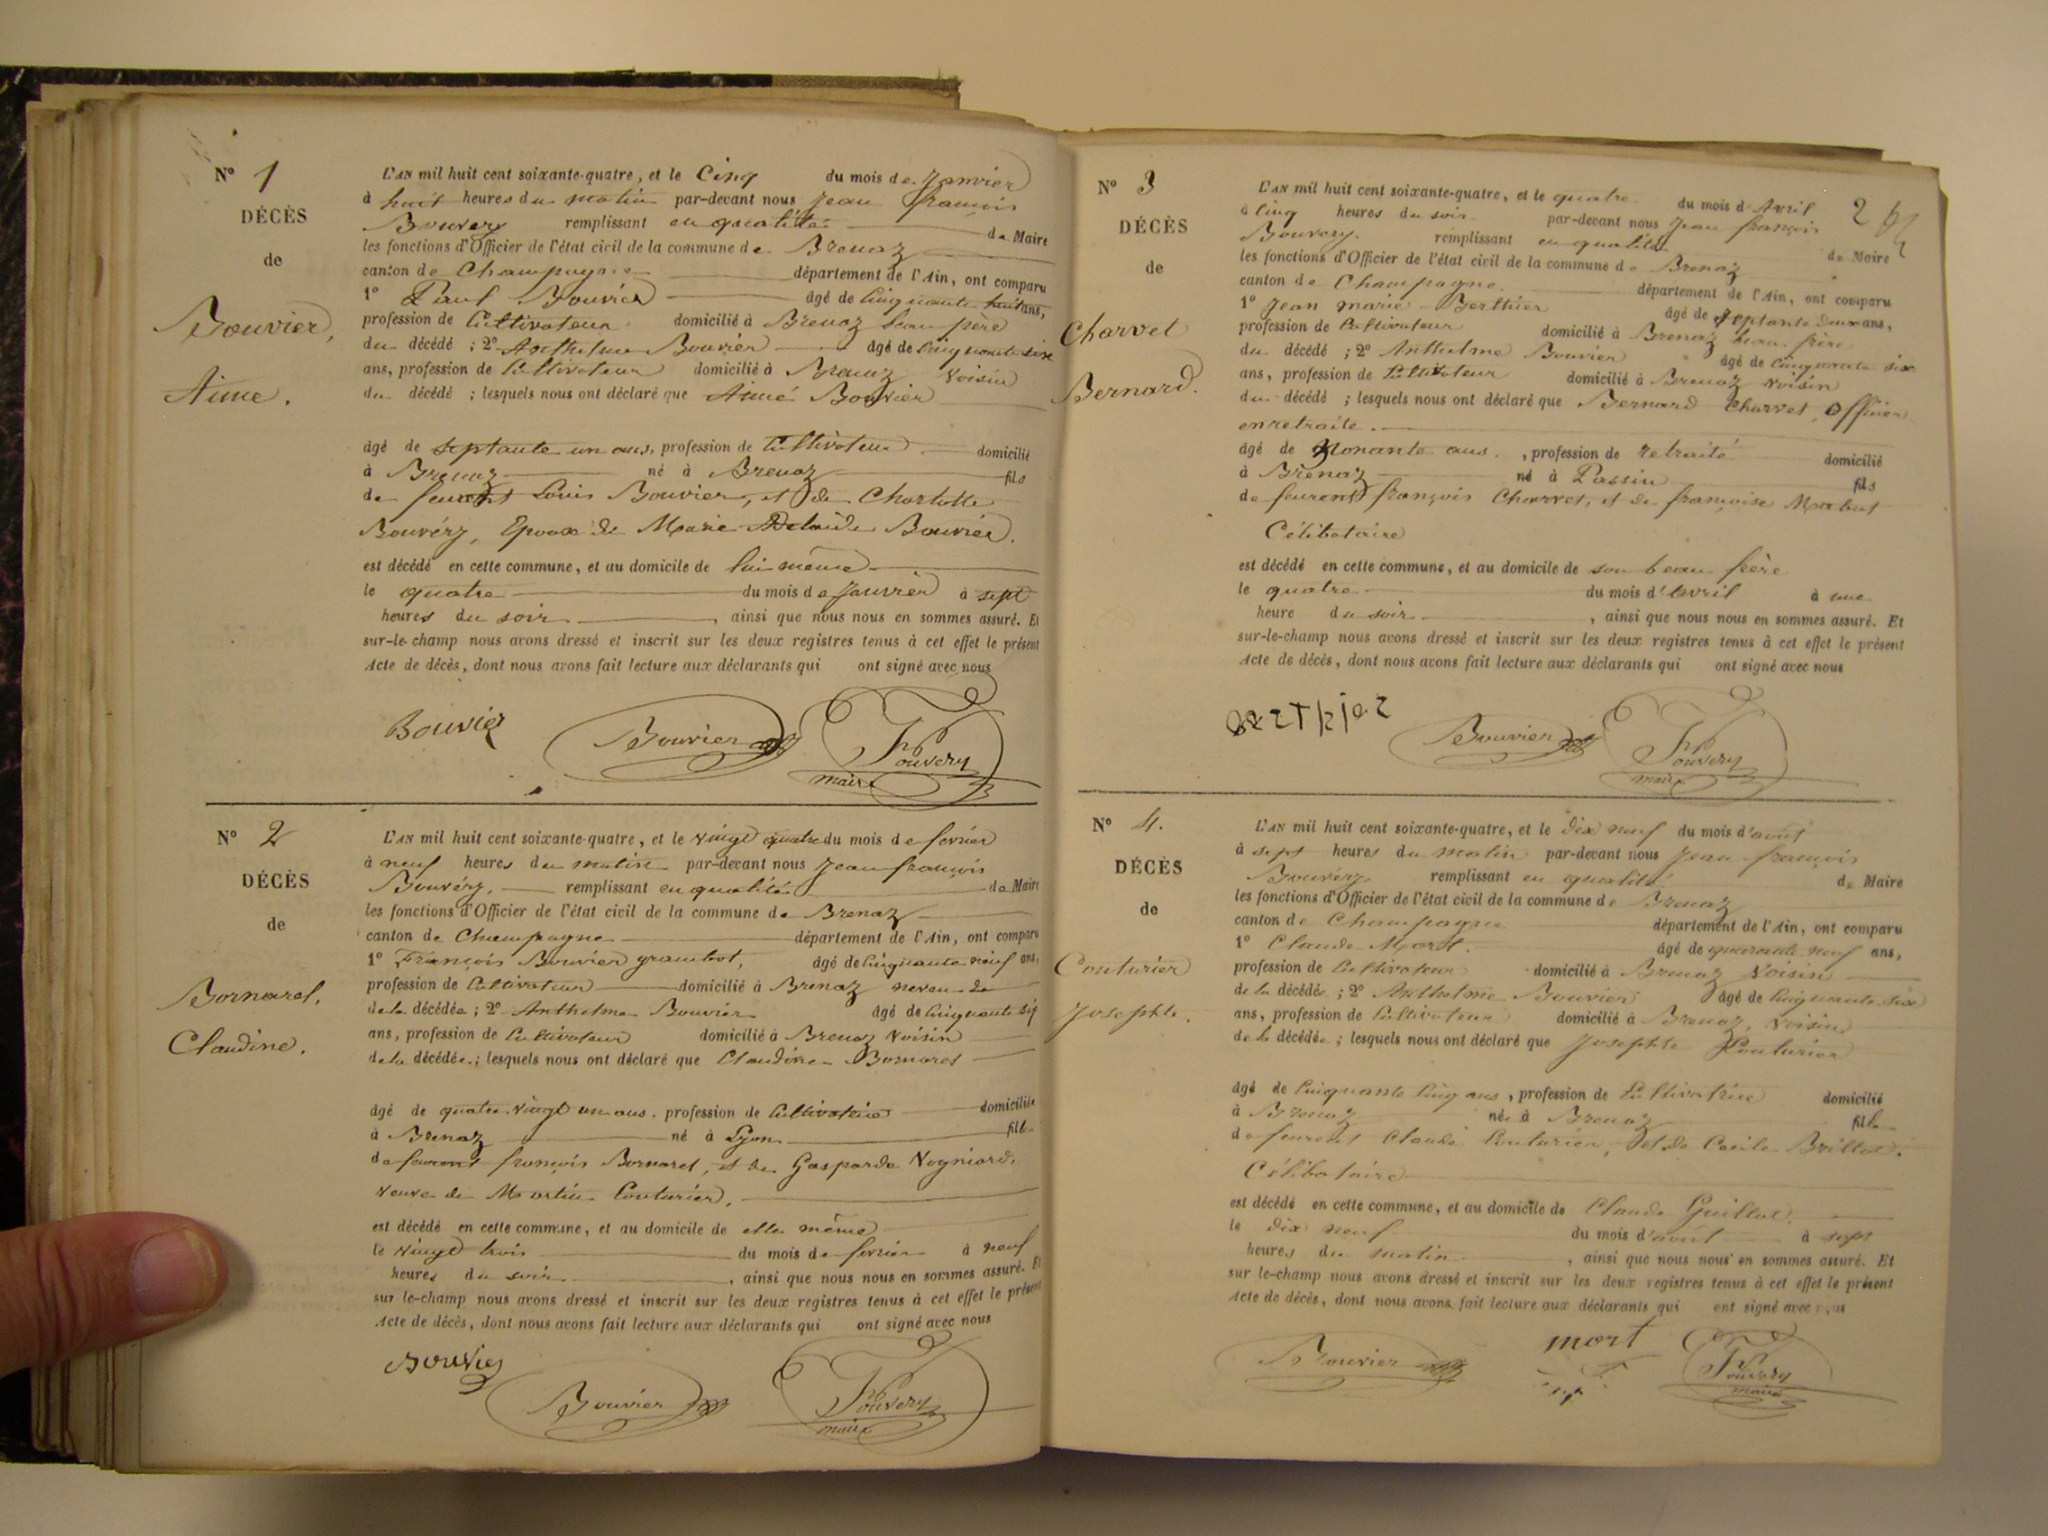 N° 1
DÉCÈS
de
Bouvier,
Aimé.
L'AN mil huit cent soixante-quatre, et le Cinq du mois de Janvier
à huit heures du matin par-devant nous Jean françois
Bouvery remplissant en qualité de Maire
les fonctions d'Officier de l'état civil de la commune de Brenaz
canton de Champagne département de l'Ain, ont comparu
1° Paul Bouvier âgé de Cinquante huit ans,
profession de Cultivateur domicilié à Brenaz beau père
du décédé ; 2° Anthelme Bouvier âgé de Cinquante six
ans, profession de Cultivateur domicilié à Brenaz Voisin
du décédé ; lesquels nous ont déclaré que Aimé Bouvier
âgé de septante un ans, profession de Cultivateur domicilié
à Brenaz né à Brenaz fils
de feurent Louis Bouvier, et de Charlotte
Bouvéry, Epoux de Marie Adelaide Bouvier.
est décédé en cette commune, et au domicile de lui même
le quatre du mois de Janvier à sept
heures du soir , ainsi que nous nous en sommes assuré. Et
sur-le-champ nous avons dressé et inscrit sur les deux registres tenus à cet effet le présent
Acte de décès, dont nous avons fait lecture aux déclarants qui ont signé avec nous
Bouvier Bouvier Bouvery
maire
N° 2
DÉCÈS
de
Bornarel,
Claudine.
L'AN mil huit cent soixante-quatre, et le Vingt quatre du mois de fevrier
à neuf heures du matin par-devant nous Jean françois
Bouvéry, remplissant en qualité de Maire
les fonctions d'Officier de l'état civil de la commune de Brenaz
canton de Champagne département de l'Ain, ont comparu
1° François Bouvier grambot, âgé de Cinquante neuf ans,
profession de Cultivateur domicilié à Brenaz neveu de
de la décédée ; 2° Anthelme Bouvier âgé de Cinquante six
ans, profession de Cultivateur domicilié à Brenaz Voisin
de la décédée ; lesquels nous ont déclaré que Claudine Bornarel
âgé de quatre Vingt un ans. profession de Cultivatrice domiciliée
à Brenaz né à Lyon fille
de feurent françois Bornarel, et de Gasparde Vogniard,
veuve de Martin Couturier,
est décédé en cette commune, et au domicile de elle même
le Vingt trois du mois de fevrier à neuf
heures du soir , ainsi que nous nous en sommes assuré. Et
sur le-champ nous avons dressé et inscrit sur les deux registres tenus à cet effet le présent
Acte de décès, dont nous avons fait lecture aux déclarants qui ont signé avec nous
Bouvier Bouvier Bouvery
maire
2
N° 3
DÉCÈS
de
Charvet
Bernard.
L'AN mil huit cent soixante-quatre, et le quatre du mois d'Avril
à Cinq heures du soir par-devant nous Jean françois
Bouvery. remplissant en qualité de Maire
les fonctions d'Officier de l'état civil de la commune de Brenaz
canton de Champagne département de l'Ain, ont comparu
1° Jean marie Berthier âgé de septante deux ans,
profession de Cultivateur domicilié à Brenaz beau frère
du décédé ; 2° Anthelme Bouvier âgé de Cinquante six
ans, profession de Cultivateur domicilié à Brenaz Voisin
du décédé ; lesquels nous ont déclaré que Bernard Charvet, Officier
en retraite.
âgé de Nonante ans. , profession de retraité domicilié
à Brenaz né à Passin fils
de feurent françois Charvet, et de françoise
Célibataire
est décédé en cette commune, et au domicile de son beau frère
le quatre du mois d'Avril à une
heure du soir , ainsi que nous nous en sommes assuré. Et
sur-le-champ nous avons dressé et inscrit sur les deux registres tenus à cet effet le présent
Acte de décès, dont nous avons fait lecture aux déclarants qui ont signé avec nous
Bouvier Bouvery
maire
N° 4.
DÉCÈS
de
Couturier
Josephte.
L'AN mil huit cent soixante-quatre, et le dix neuf du mois d'août
à sept heures du matin par-devant nous Jean françois
Bouvéry remplissant en qualité de Maire
les fonctions d'Officier de l'état civil de la commune de Brenaz
canton de Champagne département de l'Ain, ont comparu
1° Claude Mort. âgé de quarante neuf ans,
profession de Cultivateur domicilié à Brenaz Voisin
de la décédée ; 2° Anthelme Bouvier âgé de Cinquante six
ans, profession de Cultivateur domicilié à Brenaz, Voisin
de la décédée ; lesquels nous ont déclaré que Josephte Couturier
âgé de Cinquante Cinq ans , profession de Cultivatrice domicilié
à Brenaz née à Brenaz fille
de feurent Claude Couturier, et de Cecile Brillat.
Célibataire
est décédé en cette commune, et au domicile de Claude Guillot.
le dix neuf du mois d'août à sept
heures du matin , ainsi que nous nous en sommes assuré. Et
sur le-champ nous avons dressé et inscrit sur les deux registres tenus à cet effet le présent
Acte de décès, dont nous avons fait lecture aux déclarants qui ont signé avec nous
Bouvier mort Bouvery
maire